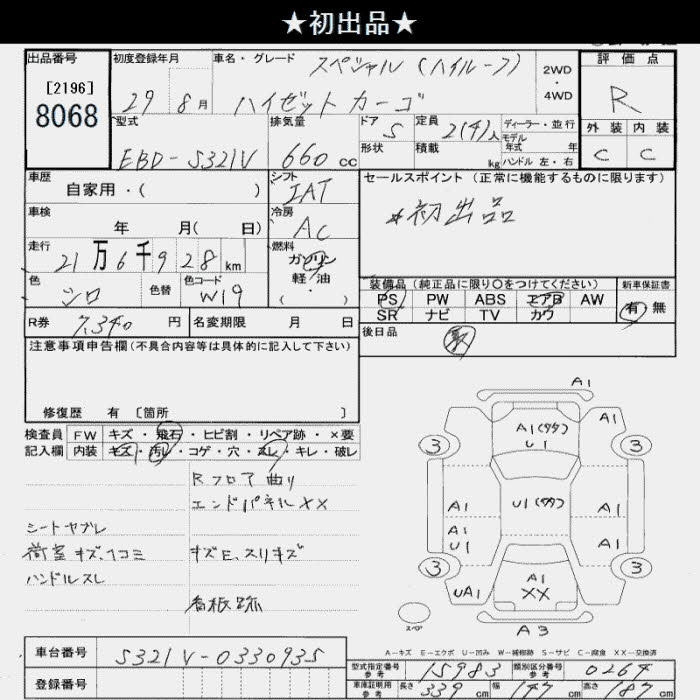 ★初出品★
出品番号
[2196]
8068
初度登録年月
29年8月
車名・グレード
スペシャル(ハイルーフ)
ハイゼットカーゴ
2WD
・
4WD
評価点
R
外装 内装
C C
型式
EBD-S321V
排気量
660 cc
ドア 5
形状
定員 2(4)人
積載 kg
ディーラー・並行
モデル
年式 年
ハンドル 左・右
車歴
自家用・( )
シフト
IAT
セールスポイント(正常に機能するものに限ります)
*初出品
車検
年 月( 日)
冷房
AC
走行
21万6千928km
燃料
ガソリン
軽・油
( ・ )
色
シロ
色替
色コード
W19
装備品(純正品に限り〇をつけてください)
PS PW ABS エアB AW
SR ナビ TV カワ
新車保証書
有 無
R券 7,340 円
名変期限 月 日
後日品
注意事項申告欄(不具合内容等は具体的に記入して下さい)
修復歴 有 [箇所 ]
検査員
記入欄
FW キズ・飛石・ヒビ割・リペア跡・×要
内装 キズ・汚レ・コゲ・穴・スレ・キレ・破レ
Rフロア曲り
エンドパネルXX
シートヤブレ
荷室キズ、ヘコミ
キズE、スリキズ
ハンドルスレ
看板跡
A1
A1(タタ)
U1
A1
3
3
A1
A1
U1
U1(タタ)
A1
A1
3
3
UA1
A1
XX
A3
スペア
A-キズ E-エクボ U-凹み W-補修跡 S-サビ C-腐食 XX-交換済
車台番号
S321V-0330935
登録番号
型式指定番号
参考
15983
類別区分番号
参考
0264
車庫証明用
参考
長さ 339 cm
幅 147 cm
高さ 187 cm